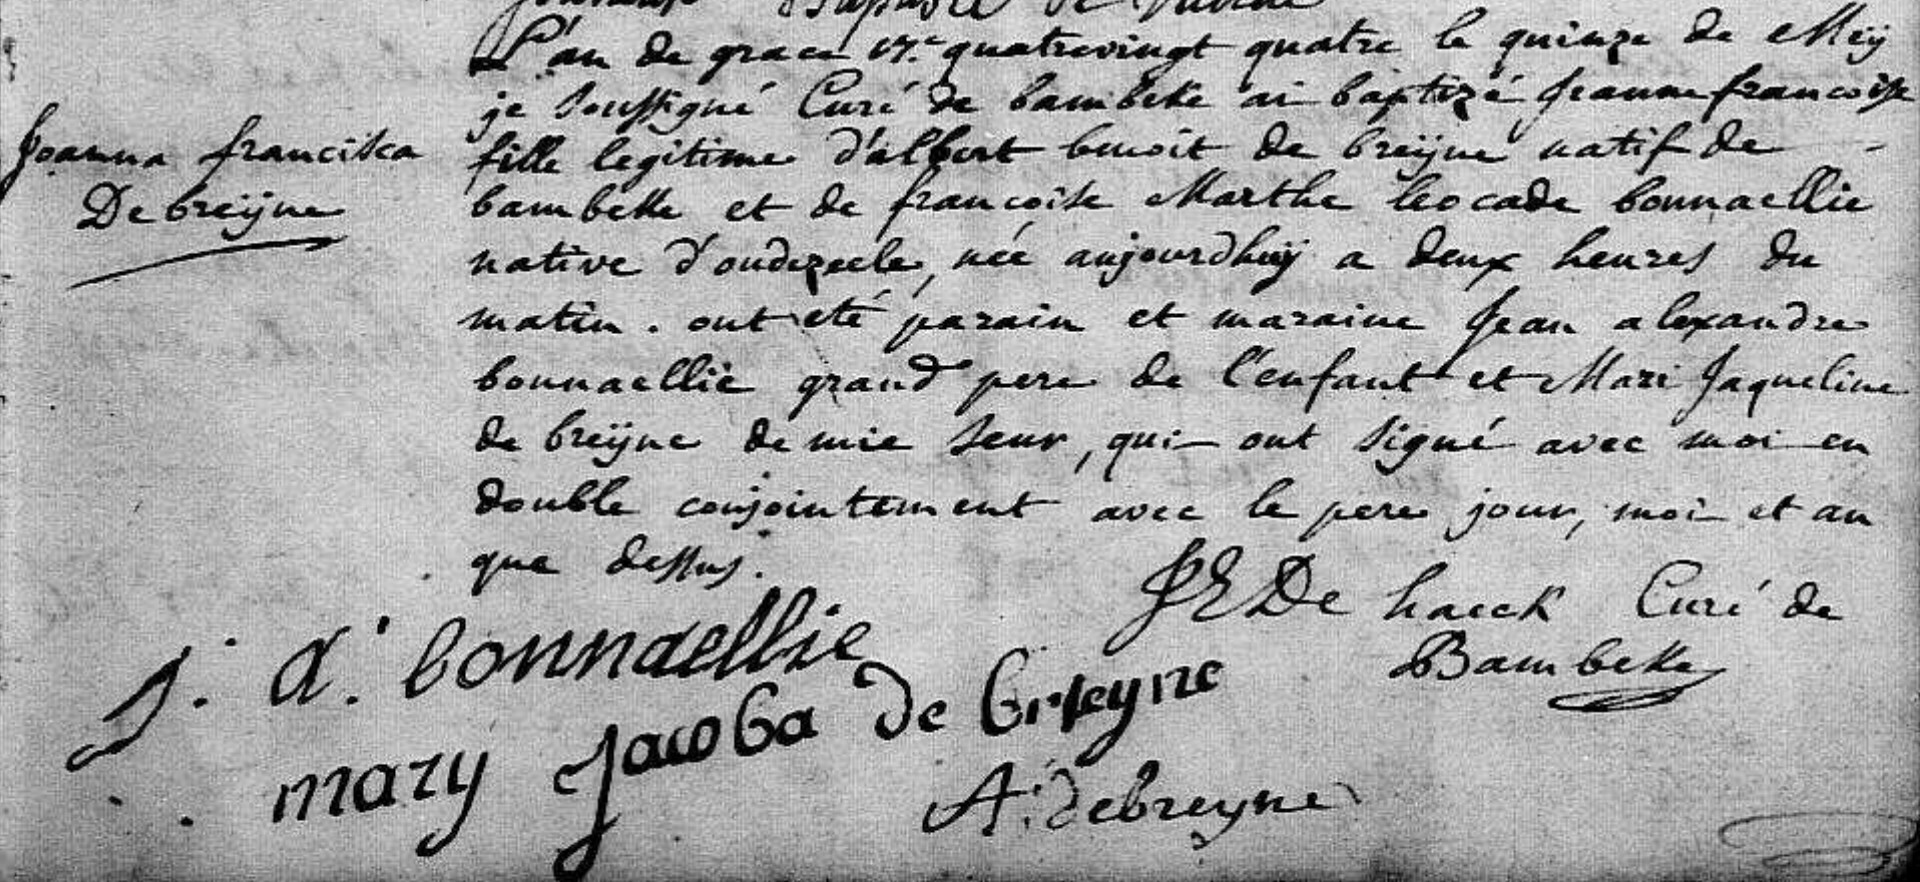 L'an de grace 17.e quatrevingt quatre le quinze de Meÿ
je soussigné Curé de bambeke ai baptizé Jeanne francoise
Joanna francisca
fille legitime d'albert benoit de breÿne natif de -
De breÿne
bambeke et de francoise Marthe leocade bonnaellie
native d'oudezeele, née aujourdhuÿ a deux heures du
matin. ont eté parain et maraine Jean alexandre
bonnaellie grand pere de l'enfant et Mari Jaqueline
de breÿne demie seur, qui ont signé avec moi en
double conjointement avec le pere jour, moi et an
que dessus.
De haeck Curé de
Bambeke
j. a. bonnaellie
mary Jacoba de breyne
A. debreyne